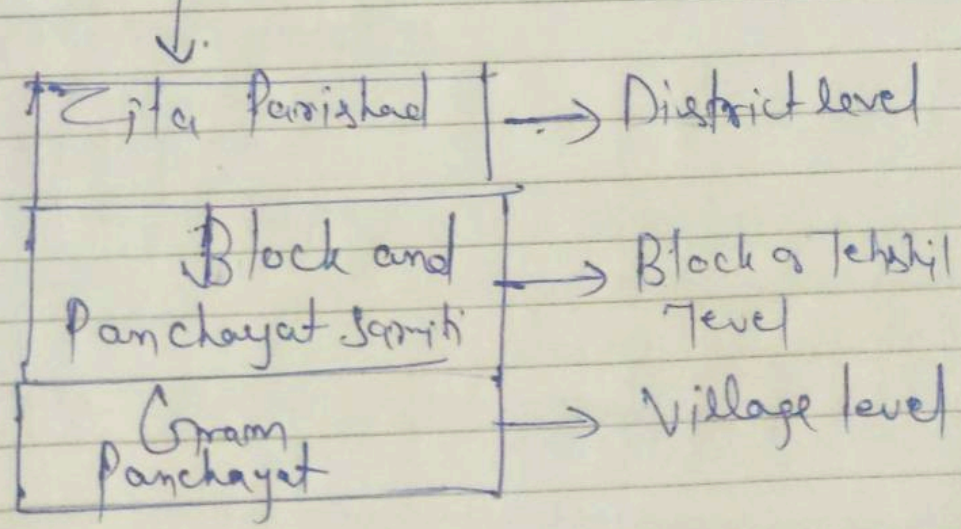 Zila Parishad → District level
Block and
Panchayat Samiti → Block or Tehshil
level
Gram
Panchayat → Village level